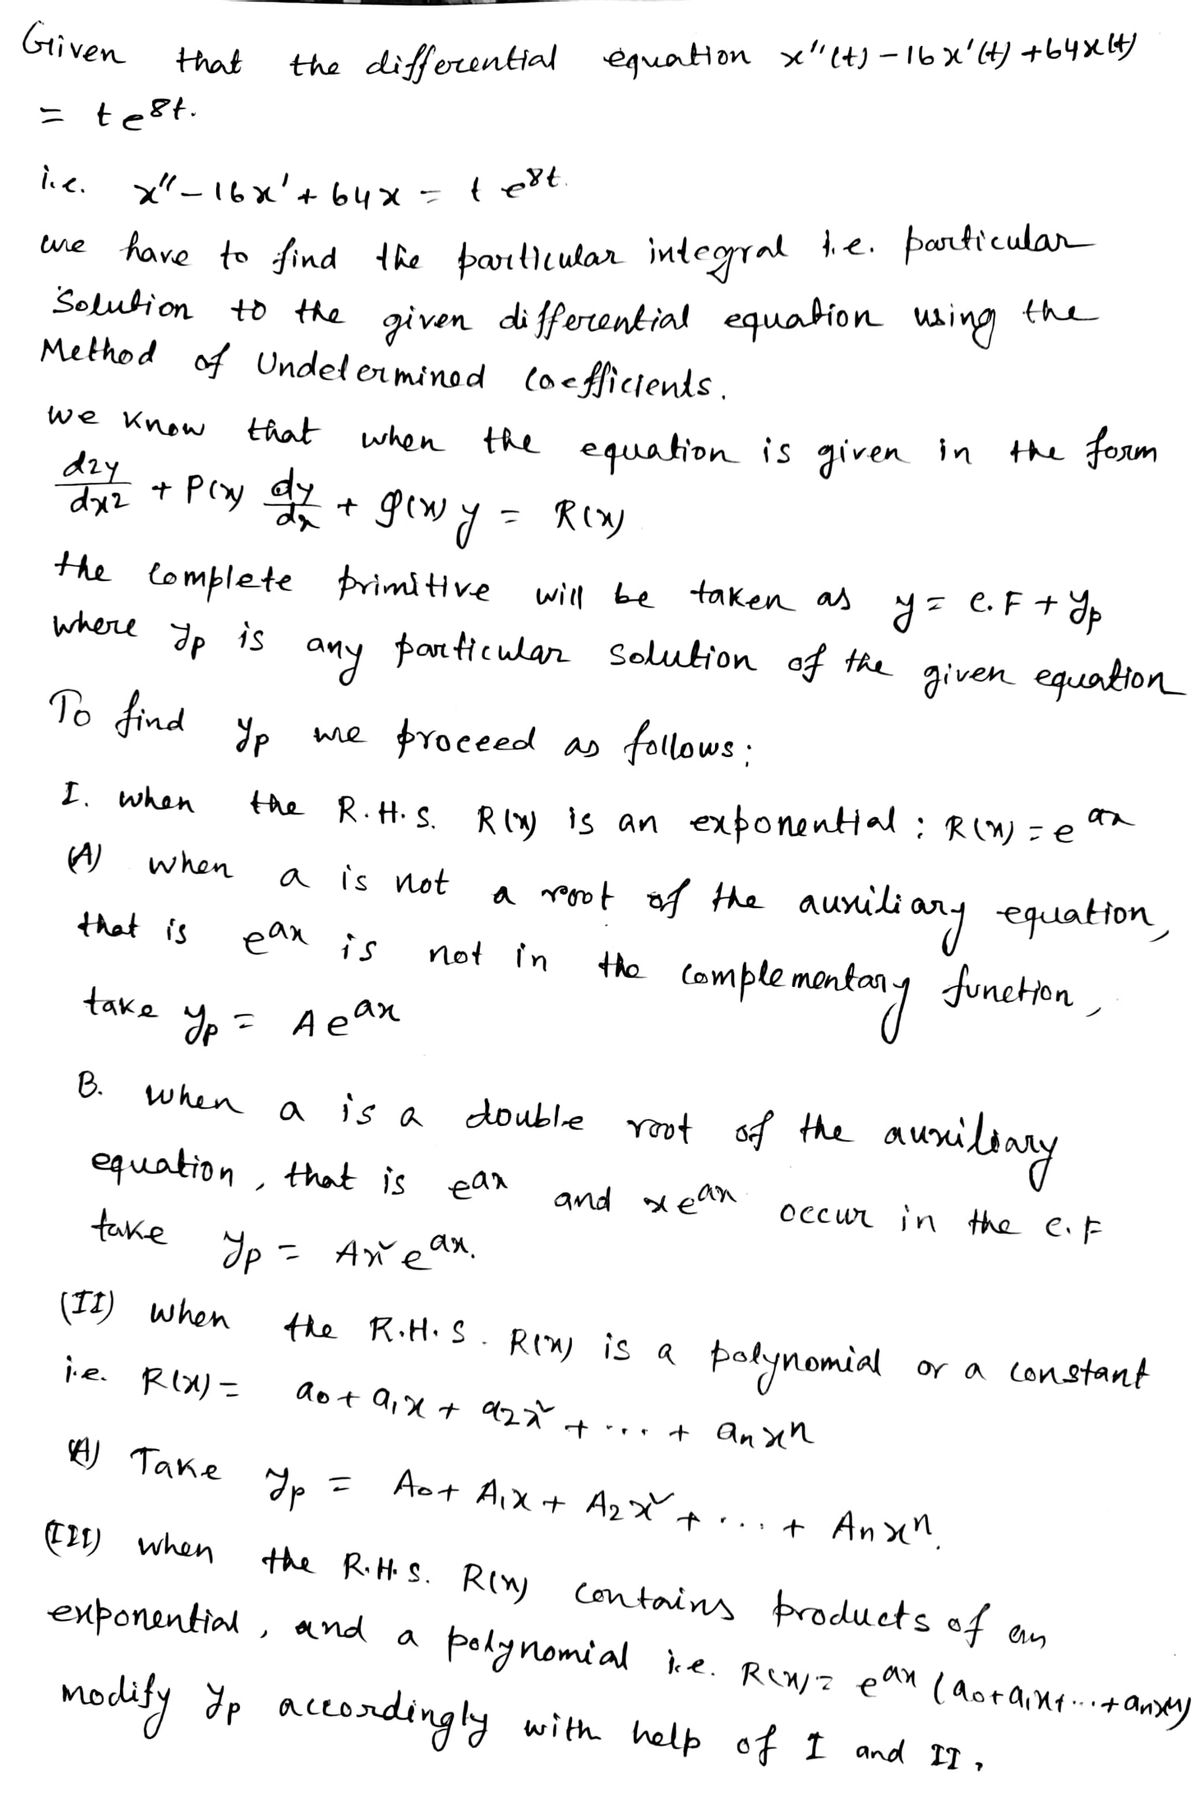 Given that the differential equation x''(t) - 16x'(t) + 64x(t)
= te^8t.
i.e. x'' - 16x' + 64x = t e^8t.
we have to find the particular integral i.e. particular
Solution to the given differential equation using the
Method of Undetermined Coefficients.
we know that when the equation is given in the form
d2y/dx2 + P(x) dy/dx + Q(x) y = R(x)
the complete primitive will be taken as y = C.F + yp
where yp is any particular solution of the given equation
To find yp we proceed as follows:
I. when the R.H.S. R(x) is an exponential: R(x) = e^ax
(A) when a is not a root of the auxiliary equation,
that is e^ax is not in the complementary function,
take yp = Ae^ax
B. when a is a double root of the auxiliary
equation, that is e^ax and xe^ax occur in the C.F
take yp = Ax²e^ax.
(II) when the R.H.S. R(x) is a polynomial or a constant
i.e. R(x) = a0 + a1x + a2x² + ... + anx^n
(A) Take yp = A0 + A1x + A2x² + ... + Anx^n.
(III) when the R.H.S. R(x) contains products of an
exponential, and a polynomial i.e. R(x) = e^ax (a0+a1x+...+anx^n)
modify yp accordingly with help of I and II,